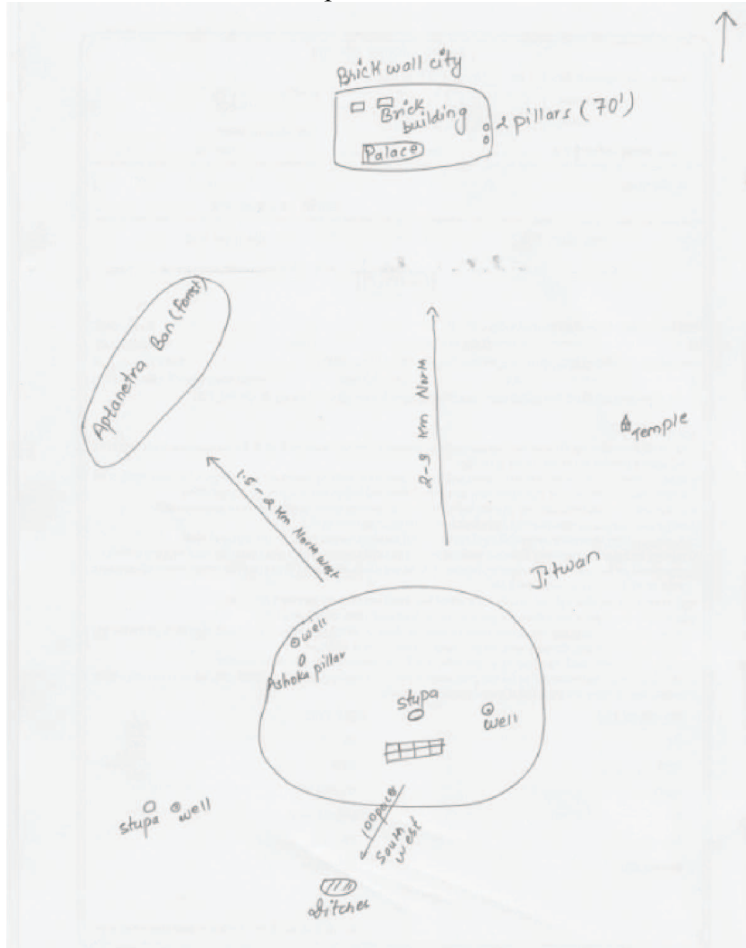 Brick wall city
Brick
building
2 pillars (70')
Palace
Aptanetra Ban (forest)
2-3 Km North
Temple
1.5-2 Km North west
Jitwan
well
Ashoka pillar
stupa
well
stupa
well
100 paces
South
west
ditches